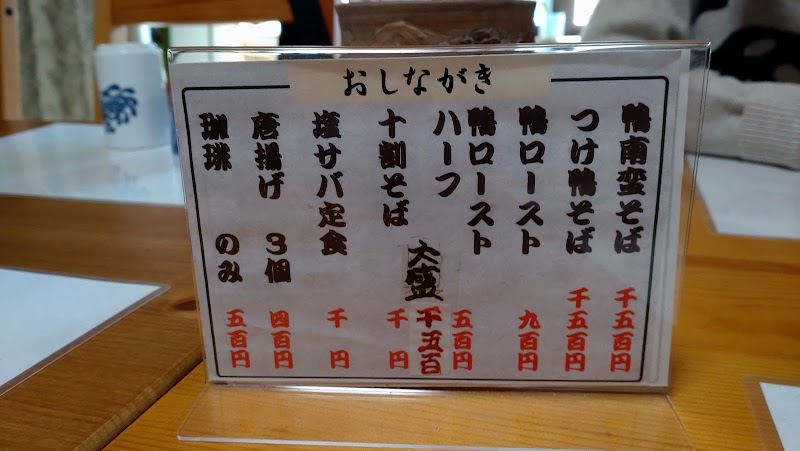 おしながき
鴨南蛮そば 千五百円
つけ鴨そば 千五百円
鴨ロースト 九百円
鴨ロースト
ハーフ 五百円
大盛 千五百
十割そば 千円
塩サバ定食 千円
唐揚げ 3個 四百円
珈琲 のみ 五百円